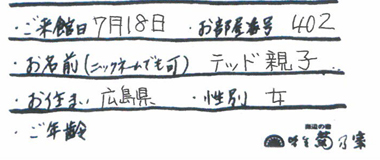 ・ご来館日 7月18日 ・お部屋番号 402
・お名前(ニックネームでも可) テッド親子
・お住まい 広島県 ・性別 女
・ご年齢